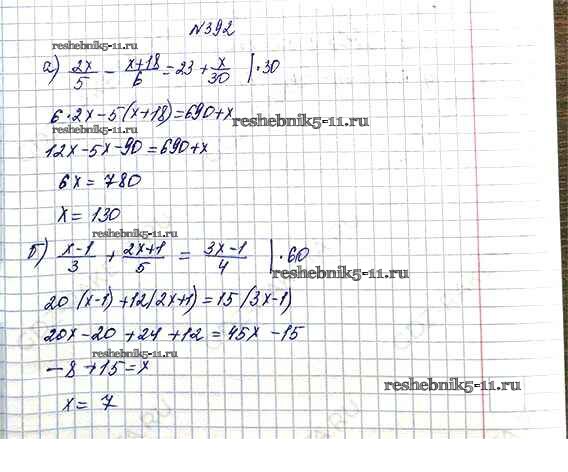 №392
reshebnik5-11.ru
а) 2x/5 - x+18/6 = 23 + x/30 | ·30
6·2x-5(x+18)=690+x
reshebnik5-11.ru
reshebnik5-11.ru
12x-5x-90=690+x
6x=780
x=130
reshebnik5-11.ru
б) x-1/3 + 2x+1/5 = 3x-1/4 | ·60
reshebnik5-11.ru
20(x-1)+12(2x+1)=15(3x-1)
20x-20+24+12=45x-15
reshebnik5-11.ru
-8+15=x
reshebnik5-11.ru
x=7